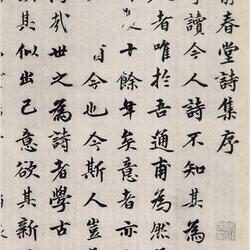 春堂詩集序
讀今人詩不知其為
者唯於吾通甫為然
十餘年矣意者亦
也今斯人豈
哉世之為詩者學古
其似出己意欲其新